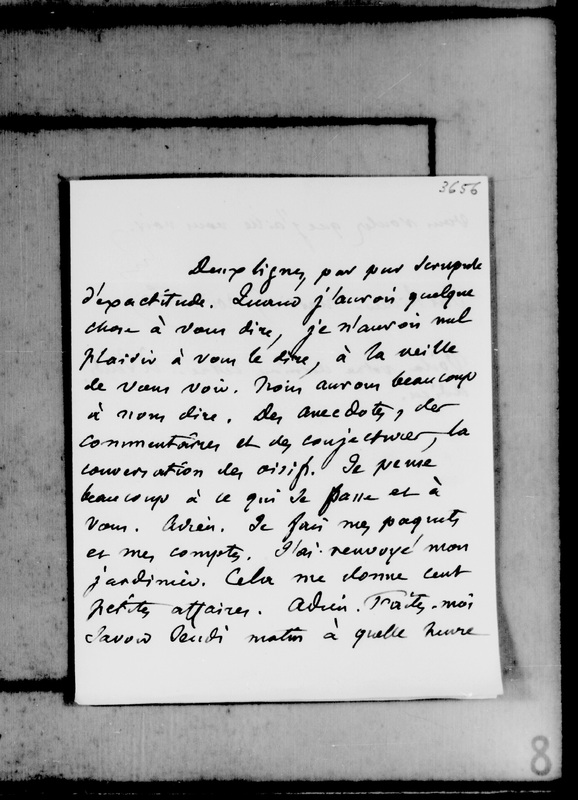 3656
Deux lignes, par pur scrupule
d'exactitude. Quand j'aurois quelque
chose à vous dire, je n'aurois nul
plaisir à vous le dire, à la veille
de vous voir. Nous aurons beaucoup
à nous dire. Des anecdotes, des
commentaires et des conjectures, la
conversation des oisifs. Je pense
beaucoup à ce qui se passe et à
vous. Adieu. Je fais mes paquets
et mes comptes. J'ai renvoyé mon
jardinier. Cela me donne cent
petites affaires. Adieu. Faites-moi
savoir Jeudi matin à quelle heure
8